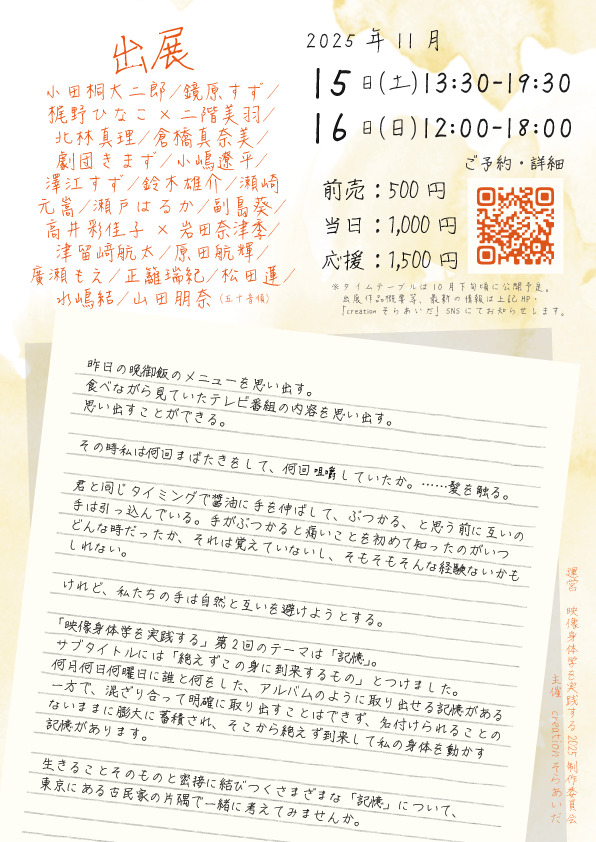 出展
小田桐大二郎/鏡原すず/
梶野ひなこ×二階美羽/
北林真理/倉橋真奈美/
劇団きまず/小嶋遼平/
澤江すず/鈴木雄介/瀬崎
元嵩/瀬戸はるか/副島葵/
高井彩佳子×岩田奈津季/
津留﨑航太/原田航輝/
廣瀬もえ/正籬瑞紀/松田蓮/
水嶋結/山田朋奈(五十音順)
2025年11月
15日(土)13:30-19:30
16日(日)12:00-18:00
ご予約・詳細
前売:500円
当日:1,000円
応援:1,500円
※タイムテーブルは10月下旬頃に公開予定。
出展作品概要等、最新の情報は上記HP・
「creationそらあいだ」SNSにてお知らせします。
昨日の晩御飯のメニューを思い出す。
食べながら見ていたテレビ番組の内容を思い出す。
思い出すことができる。
その時私は何回まばたきをして、何回咀嚼していたか。……髪を触る。
君と同じタイミングで醤油に手を伸ばして、ぶつかる、と思う前に互いの
手は引っ込んでいる。手がぶつかると痛いことを初めて知ったのがいつ
どんな時だったか、それは覚えていないし、そもそもそんな経験ないかも
しれない。
けれど、私たちの手は自然と互いを避けようとする。
「映像身体学を実践する」第2回のテーマは「記憶」。
サブタイトルには「絶えずこの身に到来するもの」とつけました。
何月何日何曜日に誰と何をした、アルバムのように取り出せる記憶がある
一方で、混ざり合って明確に取り出すことはできず、名付けられることの
ないままに膨大に蓄積され、そこから絶えず到来して私の身体を動かす
記憶があります。
生きることそのものと密接に結びつくさまざまな「記憶」について、
東京にある古民家の片隅で一緒に考えてみませんか。
運営 映像身体学を実践する2025制作委員会
主催 creationそらあいだ